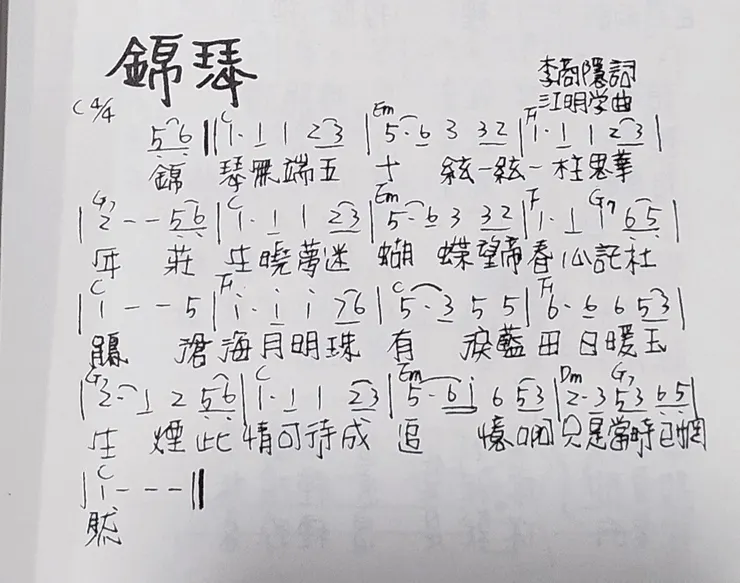 錦瑟
李商隱詞
江明学曲
C 4/4
5 6 || 1· 1 1 2 3 | 5· 6 3 3 2 | 1· 1 1 2 3 |
C Em F
錦 瑟無端五 十 絃一絃一柱思華
G7 C Em F G7
| 2 - - 5 6 | 1· 1 1 2 3 | 5· 6 3 3 2 | 1· 1 6 5 |
年 莊 生曉夢迷 蝴 蝶望帝春心託杜
C F C F
| 1 - - 5 | i· i i 7 6 | 5· 3 5 5 | 6· 6 6 5 3 |
鵑 滄海月明珠 有 淚藍田日暖玉
G7 C Em Dm G7
| 2· 1 2 5 6 | 1· 1 1 2 3 | 5· 6 i 6 5 3 | 2· 3 5 3 6 5 |
生 煙此情可待成 追 憶啊只是當時已惘
C
| 1 - - - ||
然